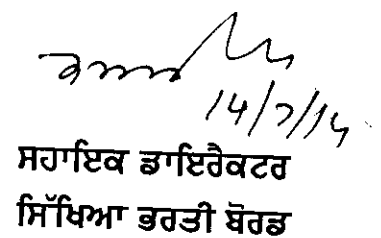 14/7/14
ਸਹਾਇਕ ਡਾਇਰੈਕਟਰ
ਸਿੱਖਿਆ ਭਰਤੀ ਬੋਰਡ